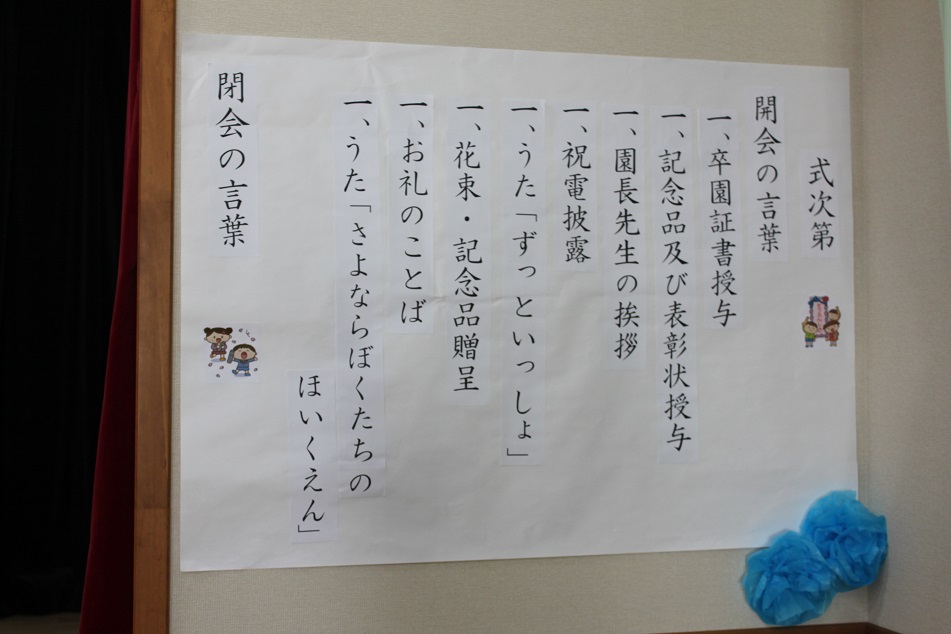 式次第
開会の言葉
一、卒園証書授与
一、記念品及び表彰状授与
一、園長先生の挨拶
一、祝電披露
一、うた「ずっといっしょ」
一、花束・記念品贈呈
一、お礼のことば
一、うた「さよならぼくたちの
ほいくえん」
閉会の言葉